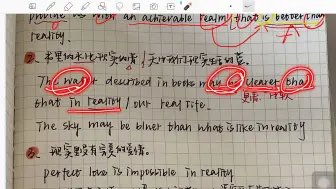 provide us with an achievable realm that is better than
reality.
书里的水比现实的清 / 天比我们现实的蓝。
The water described in books may be clearer than
that in reality / our real life.
The sky may be bluer than what is like in reality
现实里没有完美的爱情。
perfect love is impossible in reality.